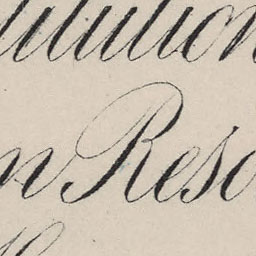 titution
n Reso